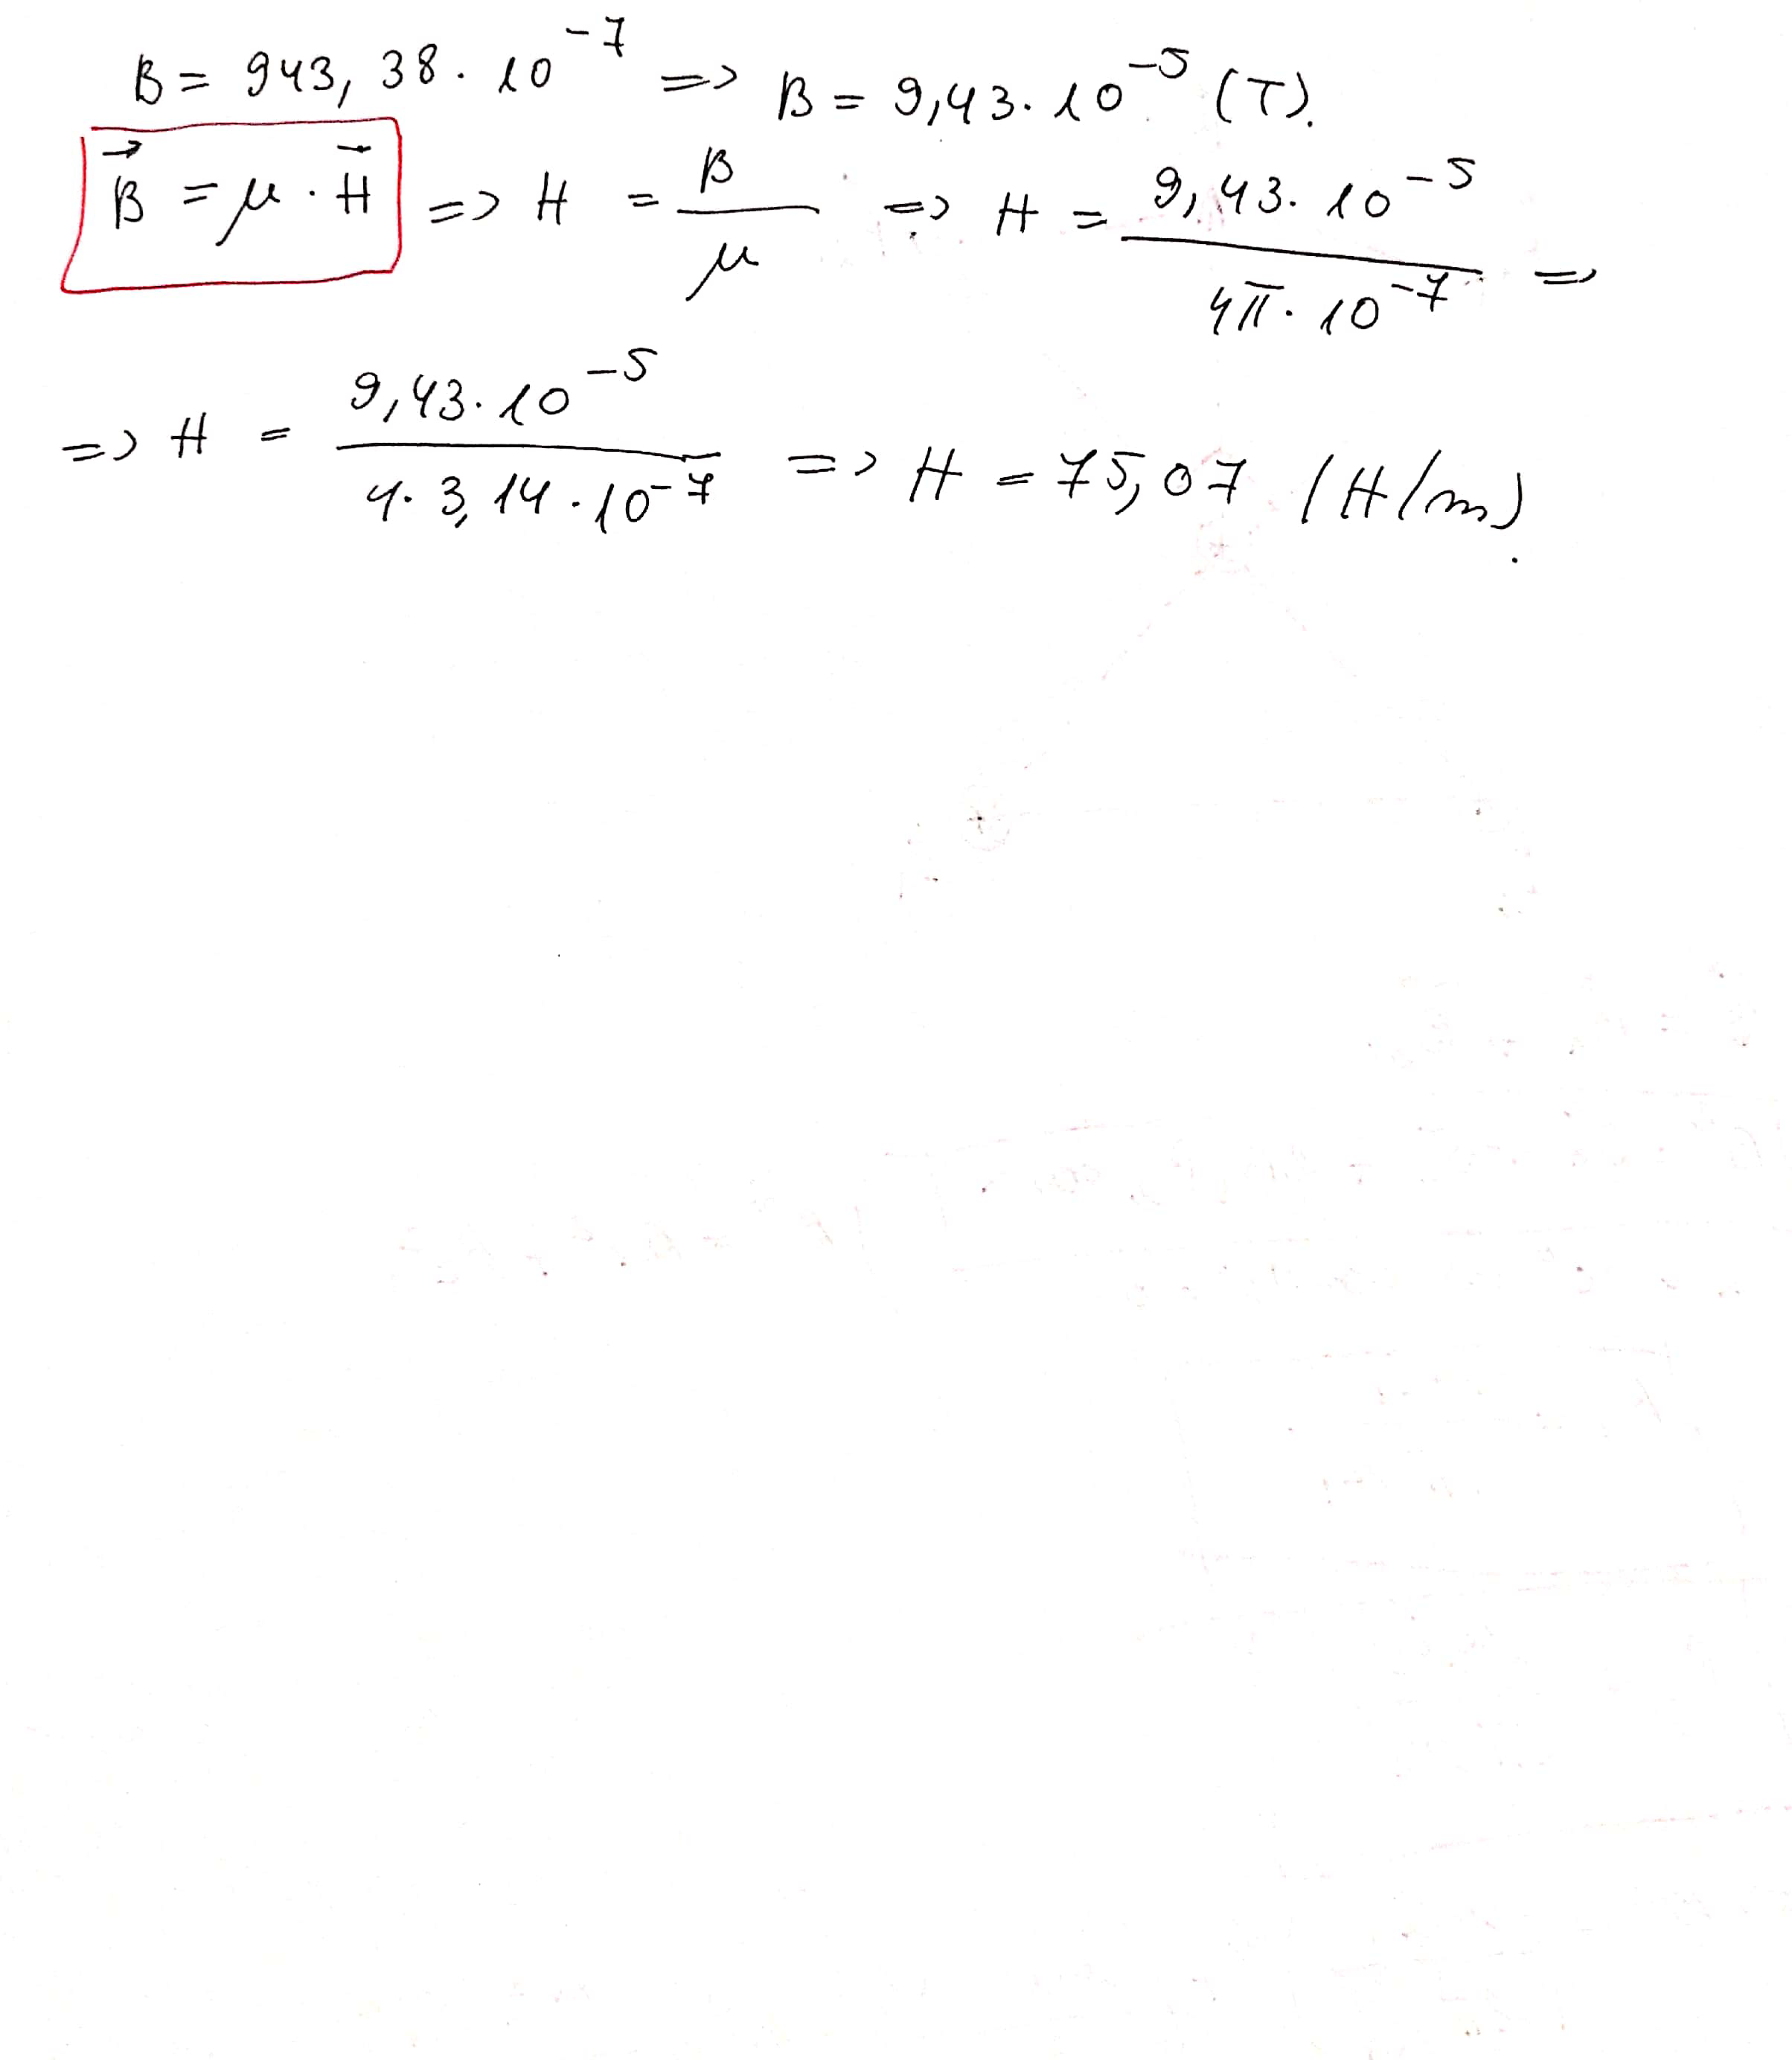 B = 943,38 · 10⁻⁷ => B = 9,43 · 10⁻⁵ (T).
B⃗ = μ · H⃗ => H = B/μ => H = 9,43 · 10⁻⁵ / 4π · 10⁻⁷ =>
=> H = 9,43 · 10⁻⁵ / 4 · 3,14 · 10⁻⁷ => H = 75,07 (H/m).